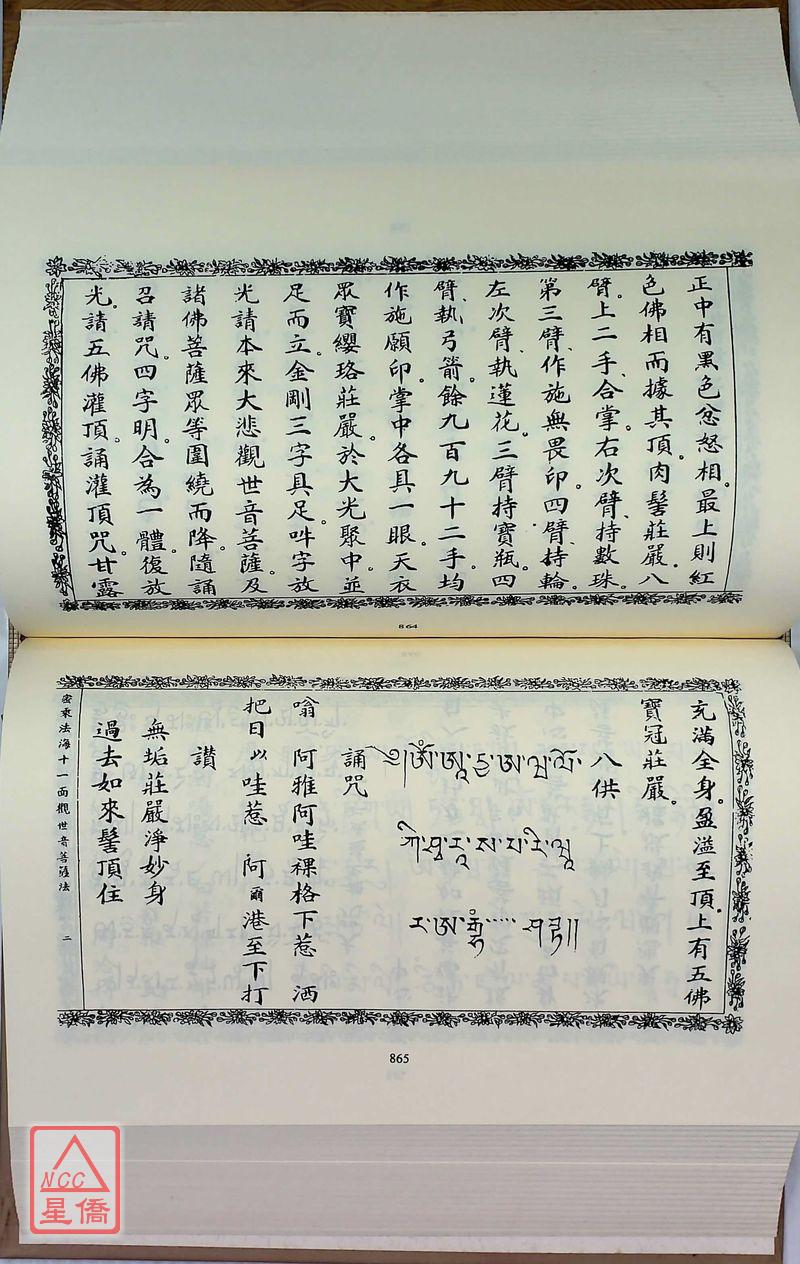 正中有黑色忿怒相。最上則紅
色佛相而據其頂。肉髻莊嚴。八
臂。上二手、合掌。右次臂、持數珠。
第三臂、作施無畏印。四臂、持輪。
左次臂、執蓮花。三臂持寶瓶。四
臂、執弓箭。餘九百九十二手。均
作施願印。掌中各具一眼。天衣
眾寶纓珞莊嚴。於大光聚中。並
足而立。金剛三字具足。吽字放
光請本來大悲觀世音菩薩。及
諸佛菩薩眾等圍繞而降。隨誦
召請咒。四字明。合為一體。復放
光。請五佛灌頂。誦灌頂咒。甘露
864
充滿全身。盈溢至頂。上有五佛
寶冠莊嚴。
八供
誦咒
嗡 阿雅阿哇裸格下惹 洒
把日以哇惹 阿爾港至下打
讃
無垢莊嚴淨妙身
過去如來髻頂住
密乘法海十一面觀世音菩薩法 二
865
NCC
星僑